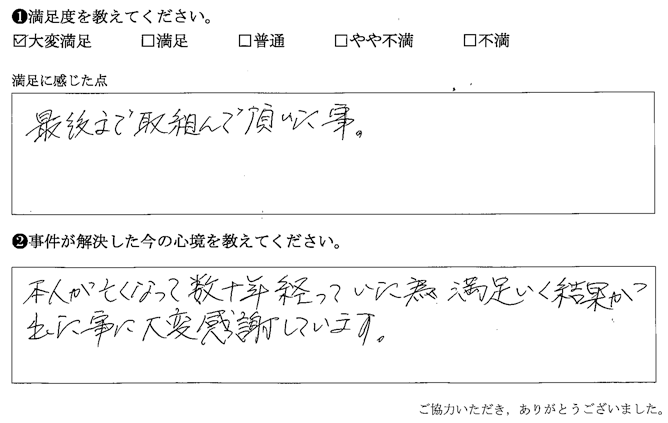 ❶満足度を教えてください。
☑大変満足 □満足 □普通 □やや不満 □不満
満足に感じた点
最後まで取組んで頂いた事。
❷事件が解決した今の心境を教えてください。
本人が亡くなって数十年経っていた為 満足いく結果が
出た事に大変感謝しています。
ご協力いただき，ありがとうございました。